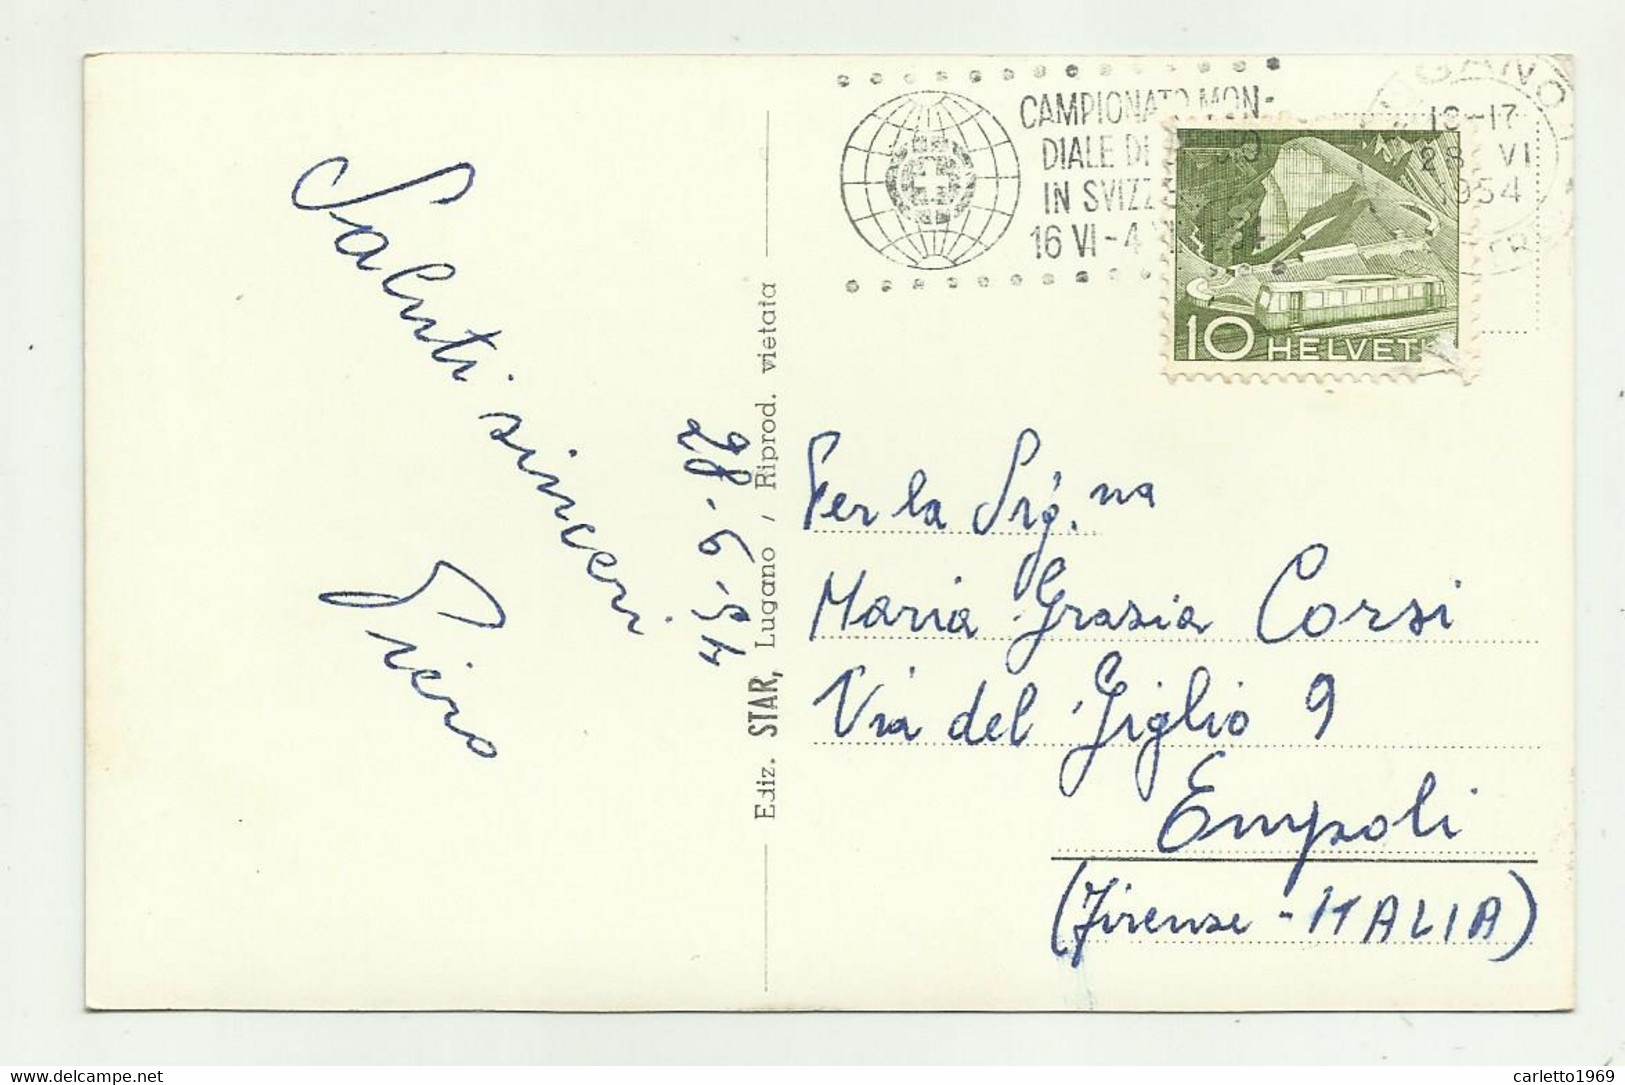 Saluti sinceri
Piero
28-6-54
Ediz. STAR, Lugano / Riprod. vietata
CAMPIONATO MON-
DIALE DI
IN SVIZZE
16 VI-4
LUGANO
-17
28 VI
1954
10 HELVETI
Per la Sig.na
Maria Grazia Corsi
Via del Giglio 9
Empoli
(Firenze - ITALIA)
delcampe.net
carletto1969